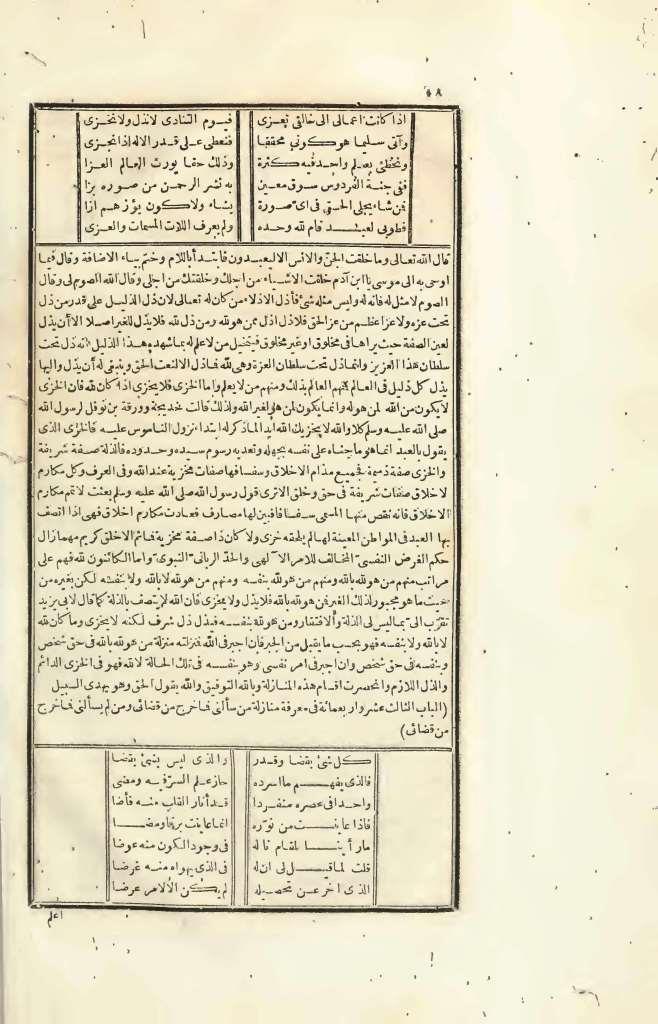 ٤٨
اذا كانت اعمالى الى خالقى تعزى فيوم التنادى لانذل ولا نخزى
وآتى سليما هو كونى محققا فنعطى على قدر الاله اذا نجزى
ونحظى بعلم واحد فيه كثرة وذلك حقا يورث العالم العزا
ففى جنة الفردوس سوق معين به نشر الرحمن من صوره بزا
فمن شاء يجلى الحق فى اى صورة يشاء ولا كون يؤزهم ازا
فطوبى لعبد قام لله وحده ولم يعرف اللات المسمات والعزى
قال الله تعالى وما خلقت الجن والانس الا ليعبدون فابتدأ باللام وختم بياء الاضافة وقال فيما
اوحى به الى موسى يا ابن آدم خلقت الاشياء من اجلك وخلقتك من اجلى وقال الله الصوم لى وقال
الصوم لا مثل له فانه له وليس مثله شئ فأذل الاذلاء من كان له تعالى لان ذل الذليل على قدر من ذل
تحت عزه ولا عز اعظم من عز الحق فلا ذل اذل ممن هو لله ومن ذل لله فلا يذل للغير اصلا الا أن يذل
لعين الصفة حيث يراها فى مخلوق او غير مخلوق فيتخيل من لا علم له بما شهده هذا الذليل انه ذل تحت
سلطان هذا العزيز وانما ذل تحت سلطان العزة وهى لله فما ذل الا لنعت الحق وينبغى له أن يذل ولها
يذل كل ذليل فى العالم فمنهم العالم بذلك ومنهم من لا يعلم واما الخزى فلا يخزى اذا كان لله فان الخزى
لا يكون من الله لمن هو له وانما يكون لمن هو لغير الله ولذلك قالت خديجة وورقة بن نوفل لرسول الله
صلى الله عليه وسلم كلا والله لا يخزيك الله ابدا لما ذكر له ابتداء نزول الناموس عليه فالخزى الذى
يقول بالعبد انما هو ما جناه على نفسه بجهله وتعديه رسوم سيده وحدوده فالذلة صفة شريفة
والخزى صفة ذميمة فجميع مذام الاخلاق وسفسافها صفات مخزية عند الله وفى العرف وكل مكارم
لاخلاق صفات شريفة فى حق وخلق الاترى قول رسول الله صلى الله عليه وسلم بعثت لاتمم مكارم
الاخلاق فانه نقص منها المسمى سفسافا فبين لها مصارف فعادت مكارم اخلاق فهى اذا اتصف
بها العبد فى المواطن المعينة لها لم يلحقه خزى ولا كان ذا صفة مخزية فما ثم الا خلق كريم مهما زال
حكم الغرض النفسى المخالف للامر الالهى والحد الربانى النبوى واما الكائنون لله فهم على
مراتب منهم من هو لله بالله ومنهم من هو لله بنفسه ومنهم من هو لله لا بالله ولا بنفسه لكن بغيره من
حيث ما هو مجبور لذلك الغير فمن هو لله بالله فلا يذل ولا يخزى فان الله لا يتصف بالذلة كما قال لابى يزيد
تقرب الى بما ليس لى الذلة والافتقار ومن هو لله بنفسه فيذل ذل شرف لكنه لا يخزى وما كان لله
لا بالله ولا بنفسه فهو بحسب ما يقبل من الجبر فان اجبر فى الله فنزلته منزلة من هو لله بالله فى حق شخص
وبنفسه فى حق شخص وان اجبر فى امر نفسى وهو بنفسه فى تلك الحالة لا لله فهو فى الخزى الدائم
والذل اللازم وانحصرت اقسام هذه المنازلة وبالله التوفيق والله يقول الحق وهو يهدى السبيل
(الباب الثالث عشر واربعمائة فى معرفة منازلة من سألنى فماخرج من قضائى ومن لم يسألنى فماخرج
من قضائى)
كل شئ بقضا وقدر والذى ليس بشئ بقضا
فالذى يفهم ما اسرده حاز علم السر فيه ومضى
واحدا فى عصره منفردا قد أنار القلب منه فأضا
فاذا عاينت من نوره انما عاينت برقا ومضا
ما رأينا لمقام ناله فى وجود الكون منه عوضا
قلت لما قيل لى ان له فى الذى يهواه منه غرضا
الذى اخر عن تحصيله لم يكن الا لامر عرضا
اعلم